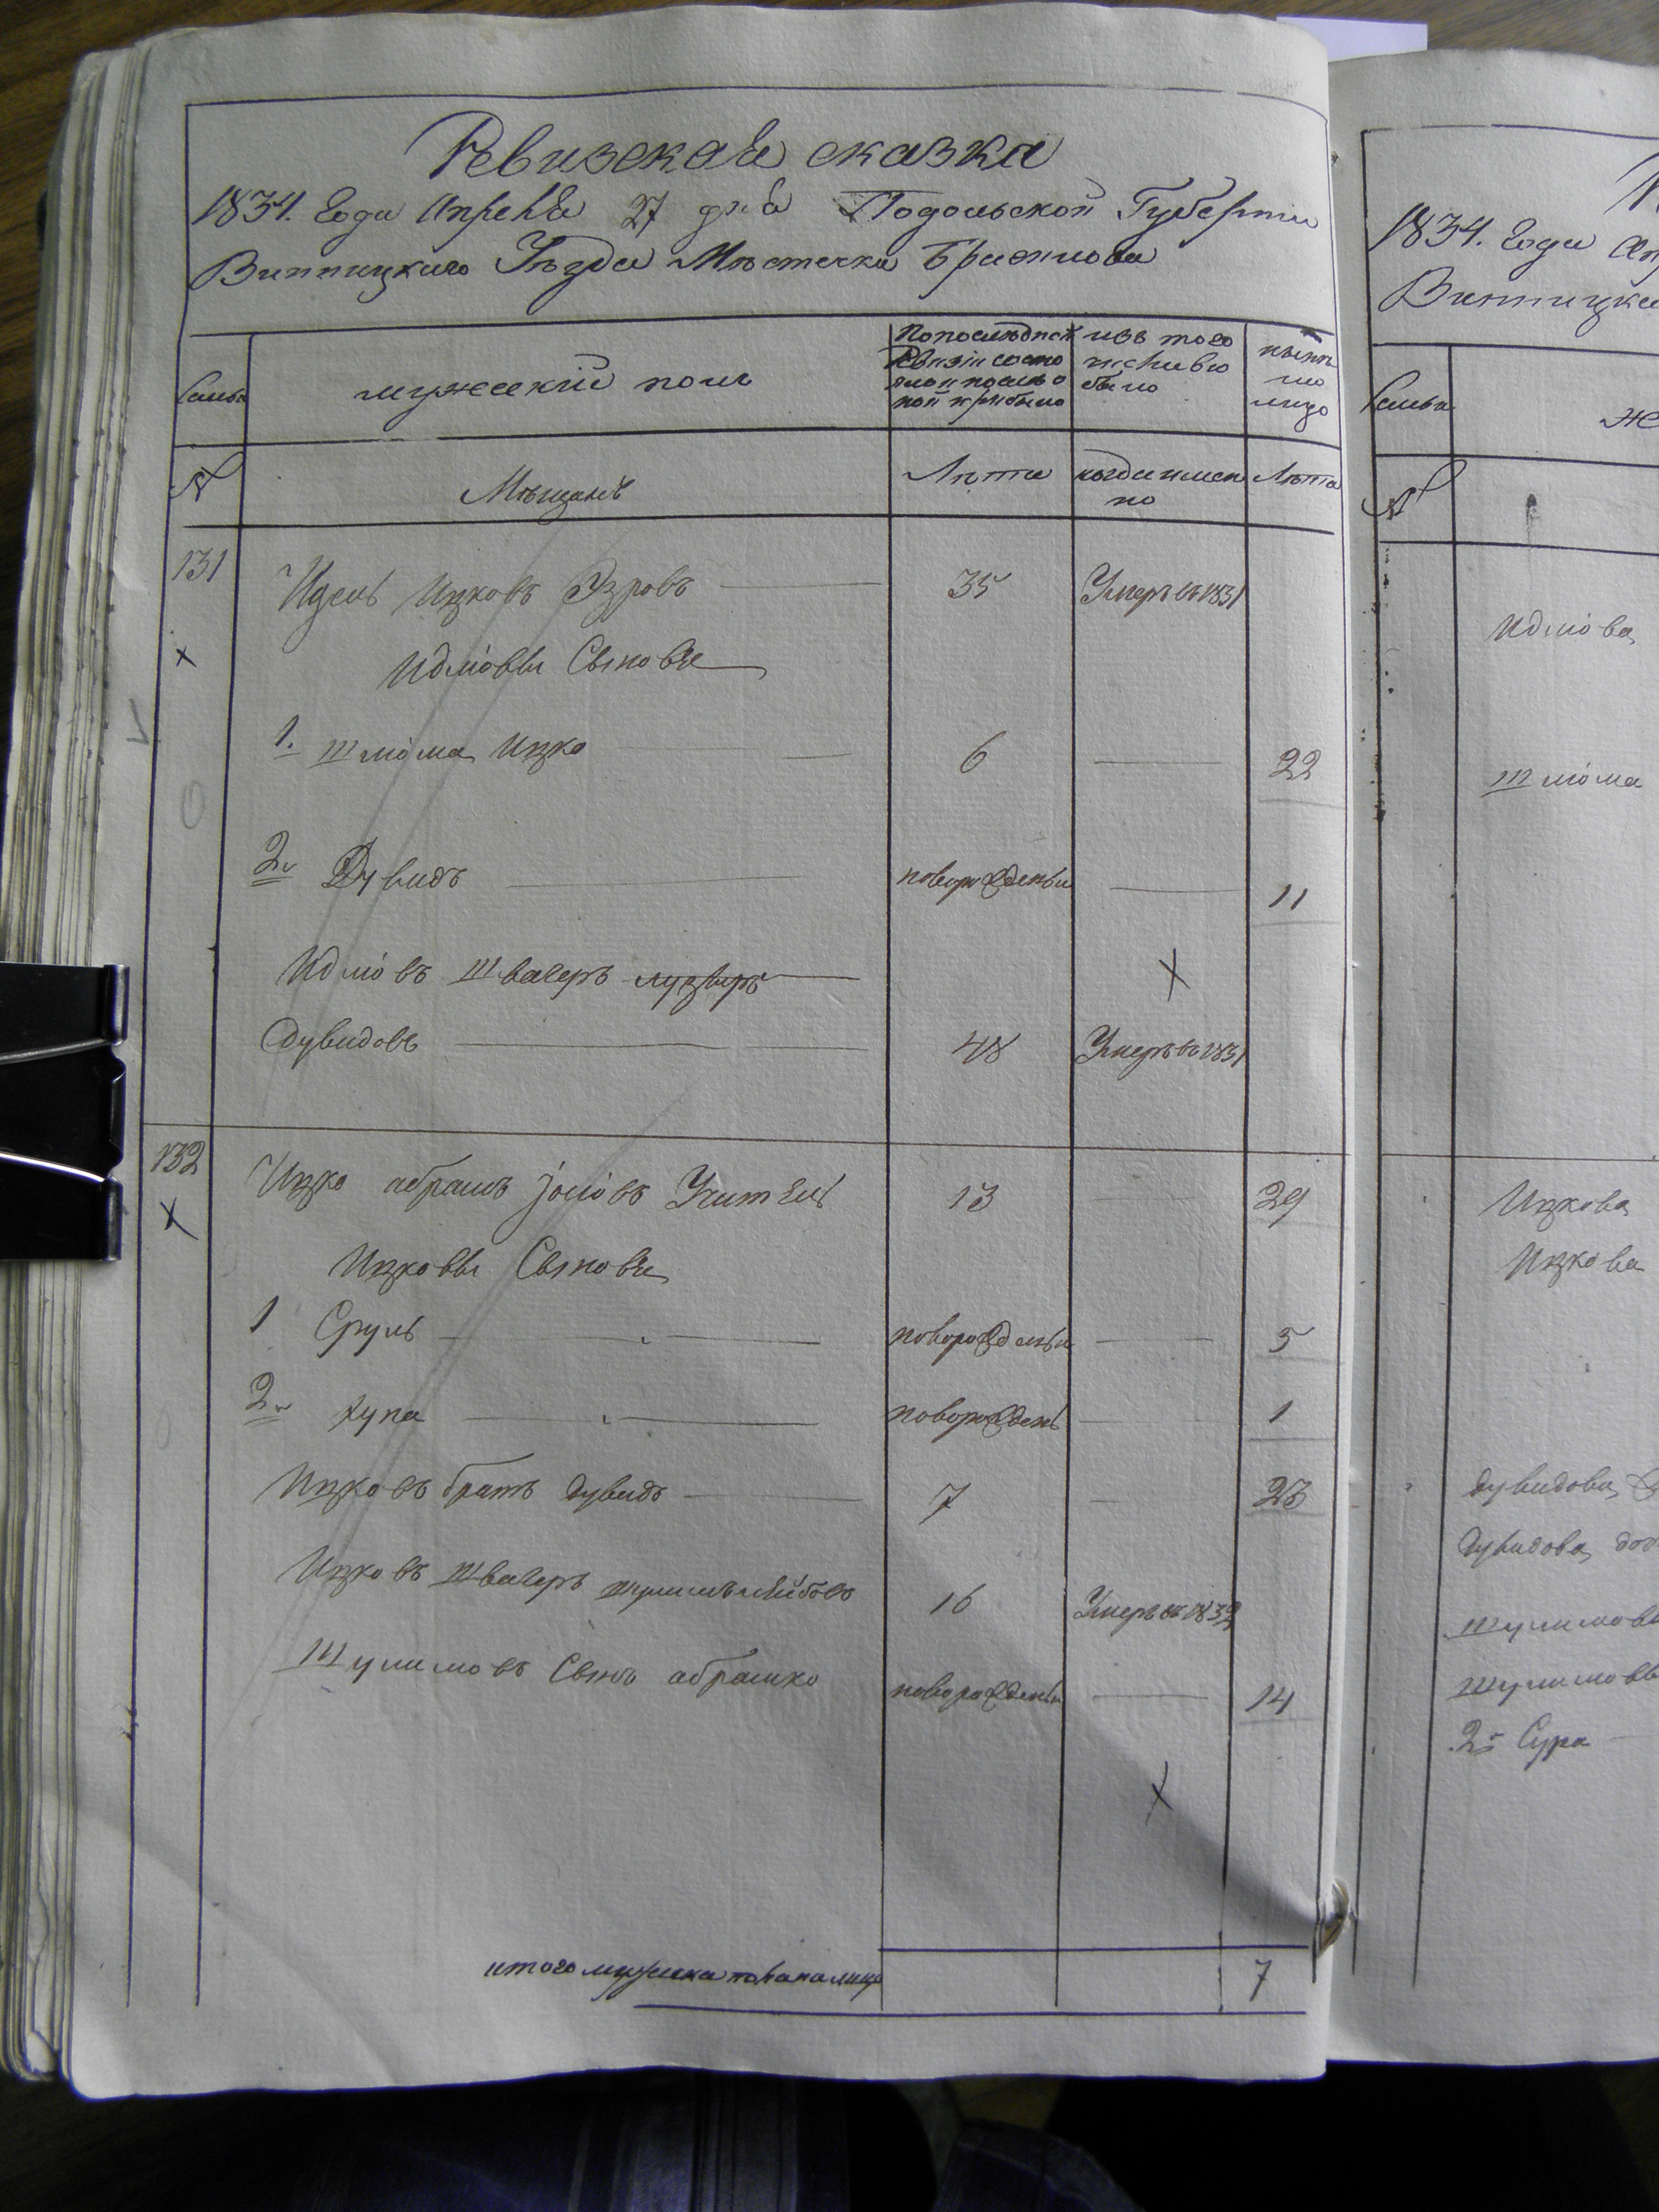 Ревизская сказка
1834. Года Апреля 27 дня Подольской Губернии
Винницкаго Уезда Мѣстечка Браилова
Семьи
мужескій полъ
По последней Ревизіи состояло и после оной прибыло
изъ того числа выбыло
ныне на лицо
№
Мѣщанъ
Лѣта
когда именно
Лѣта
131 Идель Ицковъ Эзровъ 35 Умеръ въ 1831
Идліовы Сыновья
1. Шліома Ицко 6 22
2. Дувидъ новорожденъ 11
Идліовъ Швагеръ
Дувидовъ 48 Умеръ въ 1831
132 Ицко абрамъ Іоліовъ Учитель 13 29
Ицковы Сыновья
1 Сруль новорожденъ 5
2. Хуна новорожденъ 1
Ицковъ братъ Дувидъ 7 23
Ицковъ Швагеръ шулимъ лейбовъ 16 Умеръ въ 1832
Шулимовъ Сынъ абрамко новорожденъ 14
итого мужеска пола на лицо 7
1834. Года
Винницка
Семьи
№
Идліова
Шліома
Ицкова
Ицкова
Дувидова
Дувидова доч
шулимов
шулимов
2я Сура